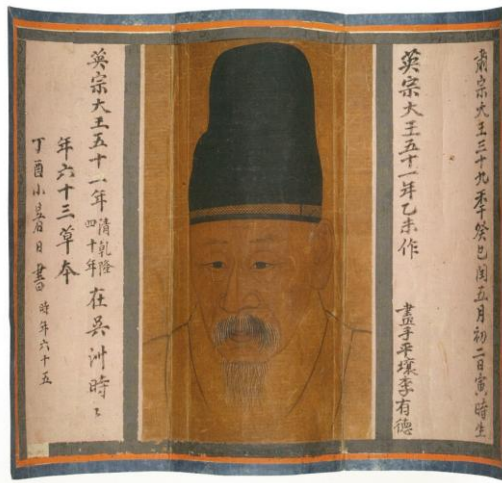 肅宗大王三十九年癸巳閏五月初二日寅時生
英宗大王五十一年乙未作
畫手平壤李有德
英宗大王五十一年淸乾隆四十年在吳洲時
年六十三草本
丁酉小春日書 時年六十五